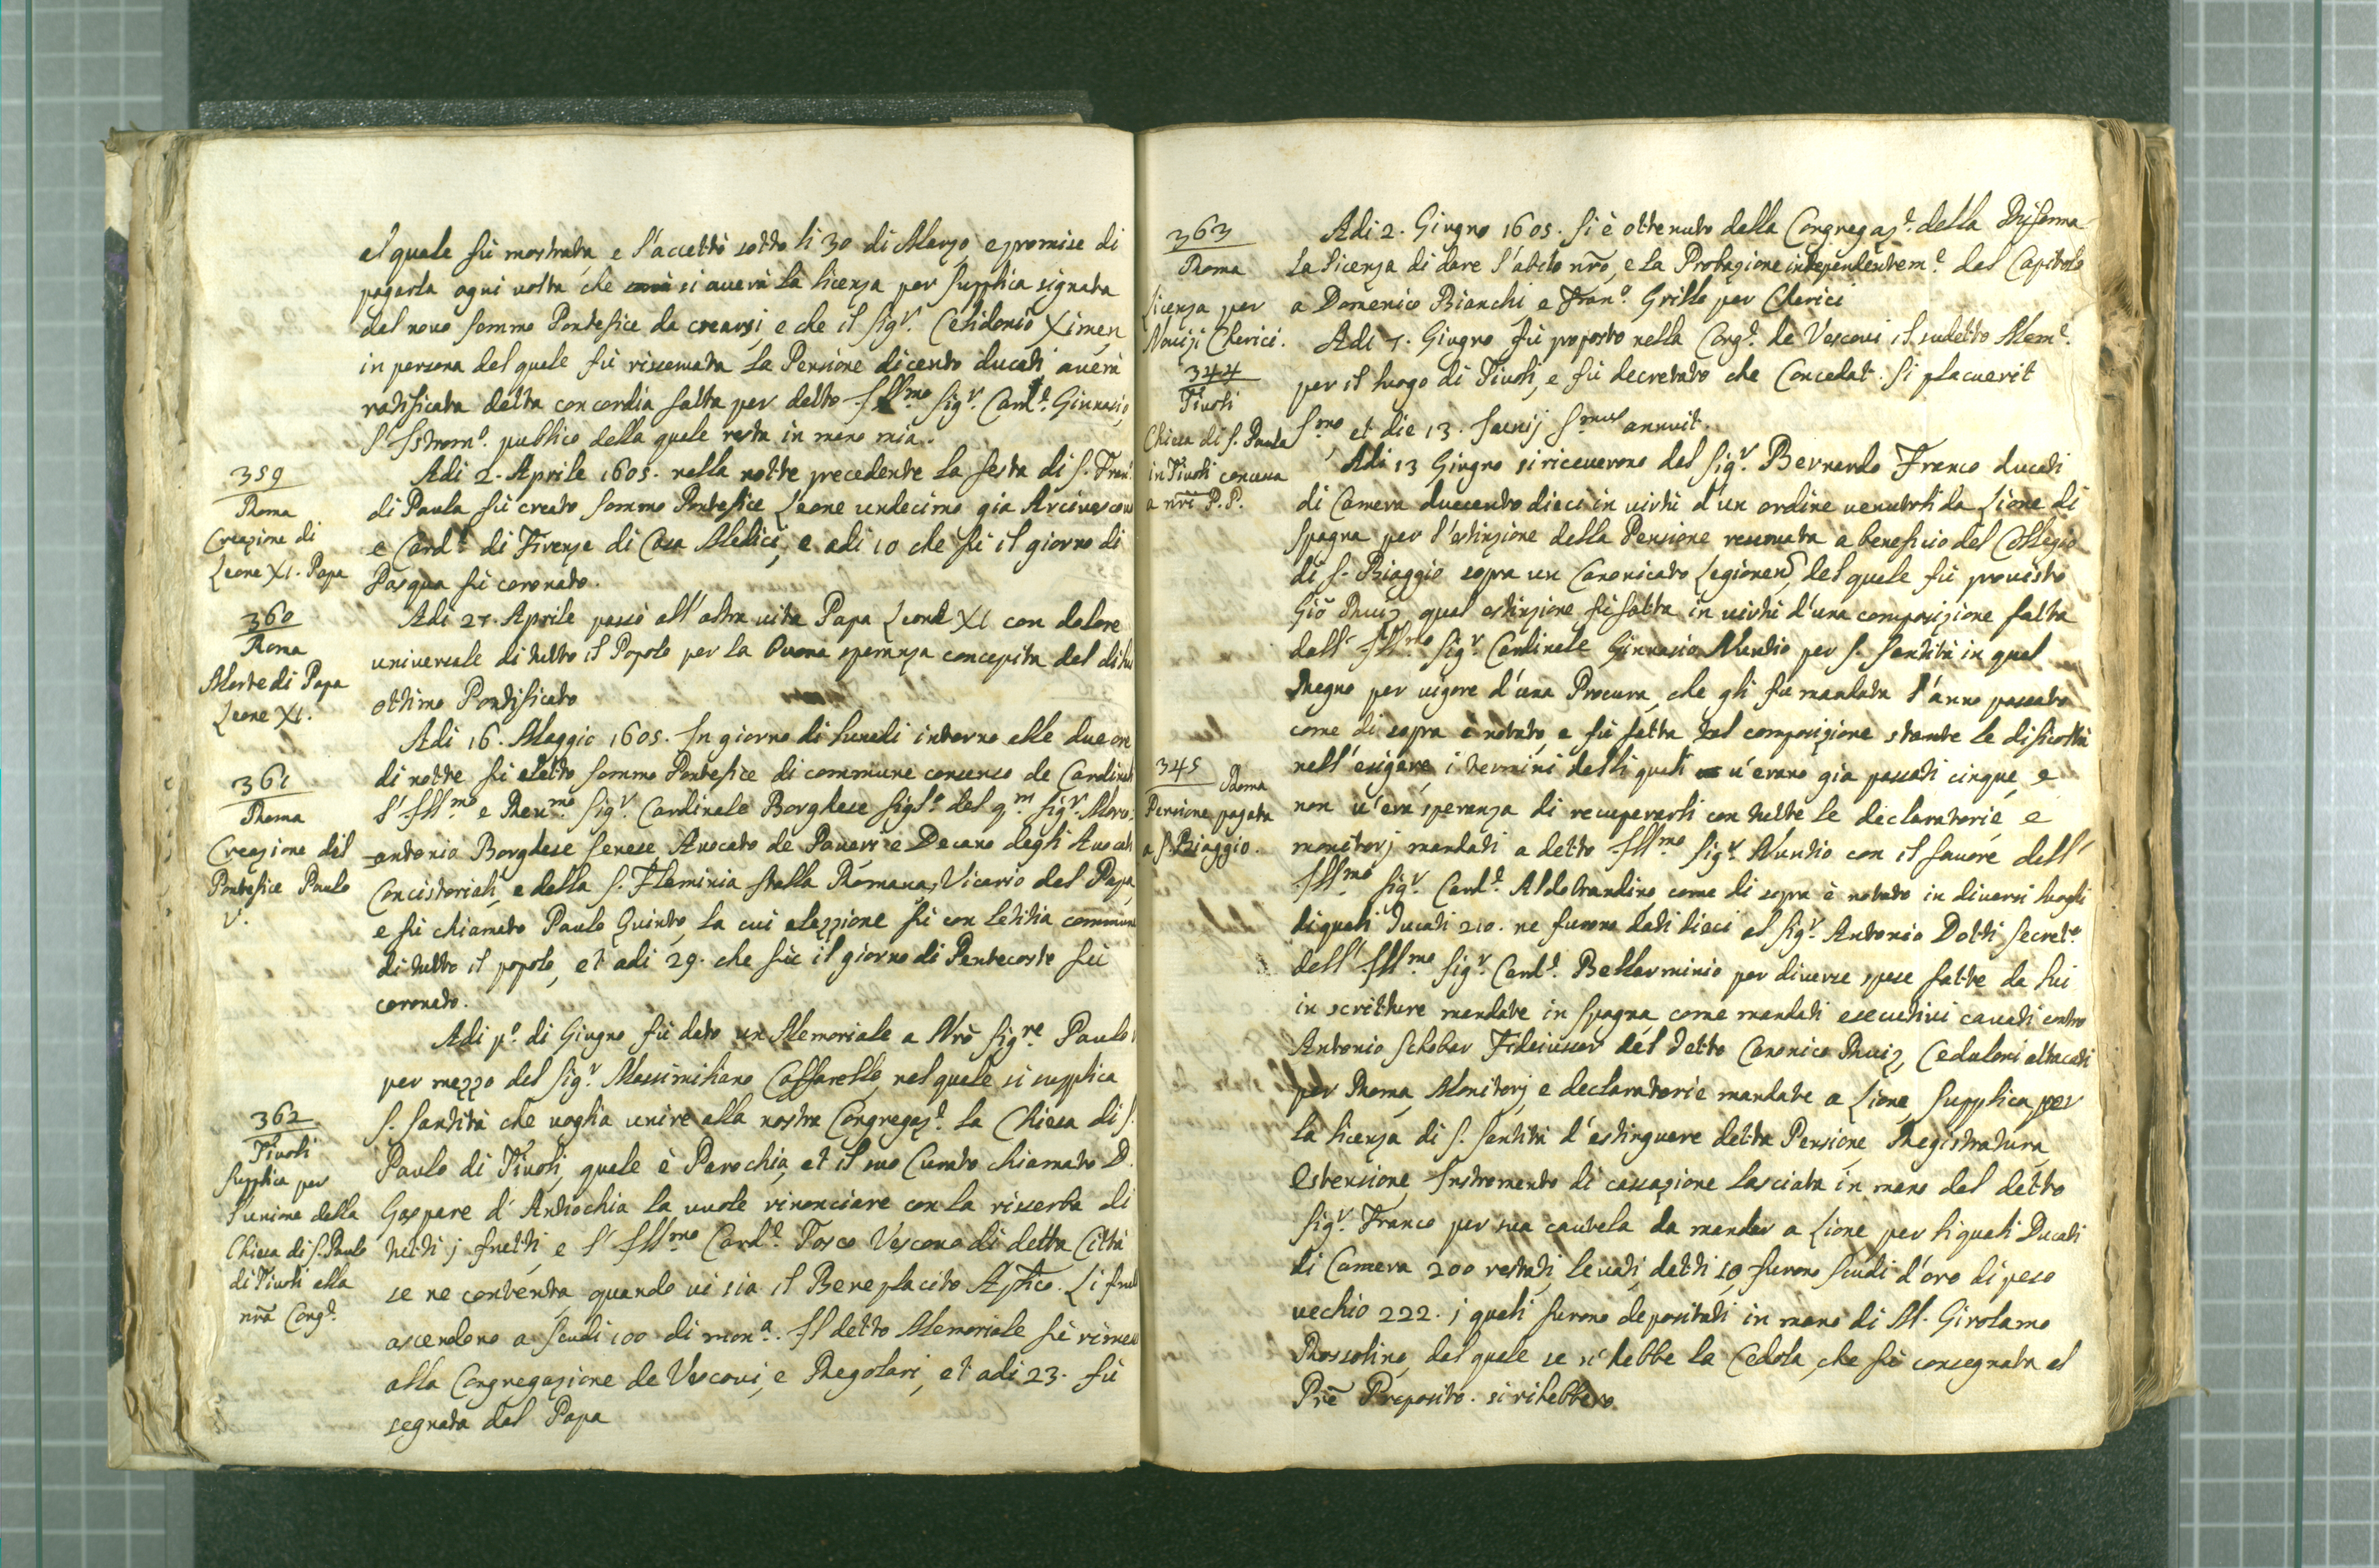 al quale fù mostrata, e l'accettò sotto li 30 di Marzo, e promise di
pagarla ogni volta che si averà la licenza per supplica signata
dal novo sommo Pontefice da crearsi, e che il Sig.r Celidonio Ximen,
in persona del quale fù risservata la Pensione di cento ducati, averà
ratificata detta concordia fatta per detto Ill.mo Sig.r Card.e Ginnasio,
l'Istrom.o publico della quale resta in mano mia.
359
Roma
Creazione di
Leone XI. Papa
Adi 2. Aprile 1605. nella notte precedente la festa di S. Fran.
di Paula fù creato sommo Pontefice Leone undecimo già Arcivescovo
e Card.e di Firenze di Casa Medici, e adi 10 che fù il giorno di
Pasqua fù coronato.
360
Roma
Morte di Papa
Leone XI.
Adi 27. Aprile passò all'altra vita Papa Leone XI con dolore
universale di tutto il Popolo per la buona speranza concepita del di lui
ottimo Pontificato
361
Roma
Creazione del
Pontefice Paulo
V.
Adi 16. Maggio 1605. In giorno di lunedi intorno alle due ore
di notte fù eletto sommo Pontefice di commune consenso de Cardinali
l'Ill.mo e Rev.mo Sig.r Cardinale Borghese figl.o del q.m Sig.r Marc
antonio Borghese senese Avocato de Poveri e Decano degli Avocati
Concistoriali, e della S. Flaminia Stalla Romana, Vicario del Papa,
e fù chiamato Paulo Quinto, la cui elezzione fù con letitia commune
di tutto il popolo, et adi 29. che fù il giorno di Pentecoste fù
coronato.
362
Tivoli
Supplica per
l'unione della
Chiesa di S. Paulo
di Tivoli alla
nrã Cong.e
Adi p.o di Giugno fù dato un Memoriale a Nrõ Sig.re Paulo V
per mezzo del Sig.r Massimiliano Caffarello, nel quale si supplica
S. Santità che voglia unire alla nostra Congregaz.e la Chiesa di S.
Paulo di Tivoli, quale è Parochia, et il suo Curato chiamato D.
Gaspare d'Antiochia la vuole rinonciare con la risserba di
tutti j frutti, e l'Ill.mo Card.e Tosco Vescovo di detta Città
se ne contenta quando vi sia il Beneplacito Aptico. Li frutti
ascendono a scudi 100 di mon.a. Il detto Memoriale fù rimesso
alla Congregazione de Vescovi, e Regolari, et adi 23. fù
segnata dal Papa
363
Roma
Licenza per
Novizi Chierici.
Adi 2. Giugno 1605. si è ottenuto dalla Congregaz.e della Riforma
la licenza di dare l'abito nrõ, e la Probazione independentem.e dal Capitolo
a Domenico Bianchi e Fran.o Grillo per Chierici
344
Tivoli
Chiesa di S. Paula
in Tivoli concessa
a nrì P.P.
Adi 7. Giugno fù proposto nella Cong.e de Vescovi il sudetto Mem.e
per il luogo di Tivoli, e fù decretato che Concedat. si placuerit
S.mo et die 13. Junij S.mus annuit.
345
Roma
Pensione pagata
a S. Biaggio.
Adi 13 Giugno si riceverono dal Sig.r Bernardo Franco ducati
di Camera duecento dieci in virtù d'un ordine venutoli da Lione di
Spagna per l'estinzione della Pensione resservata a beneficio del Collegio
di S. Biaggio sopra un Canonicato Legionen, del quale fù provisto
Giõ Ruiz, qual estinzione fù fatta in virtù d'una composizione fatta
dall'Ill.mo Sig.r Cardinale Ginnasio Nuntio per S. Santità in quel
Regno per vigore d'una Procura, che gli fu mandata l'anno passato
come di sopra è notato, e fù fatta tal composizione stante le difficoltà
nell'esigere i termini delli quali n'erano già passati cinque, e
non v'era speranza di recuperarli con tutte le declaratorie e
monitorj mandati a detto Ill.mo Sig.r Nuntio con il favore dell'
Ill.mo Sig.r Card.e Aldobrandino, come di sopra è notato in diversi luoghi
di quali Ducati 210. ne furono dati dieci al Sig.r Antonio Dotti Secret.o
dell'Ill.mo Sig.r Card.e Bellarminio per diverse spese fatte da lui
in scritture mandate in Spagna come mandati esecutivi cavati contro
Antonio Schobar Fideiussor del detto Canonico Ruiz, Ceduloni attacati
per Roma, Monitorj e declaratorie mandate a Lione, Supplica per
la licenza di S. Santità d'estinguere detta Pensione, Registratura,
Estensione, Instromento di cassazione lasciata in mano del detto
Sig.r Franco per sua cautela da mandar a Lione per li quali Ducati
di Camera 200 restati, levati detti 10, furono scudi d'oro di peso
vechio 222. i quali furono depositati in mano di M. Girolamo
Rossolino, dal quale se n'hebbe la Cedola, che fù consegnata al
Prẽ Preposito. si rihebbero.